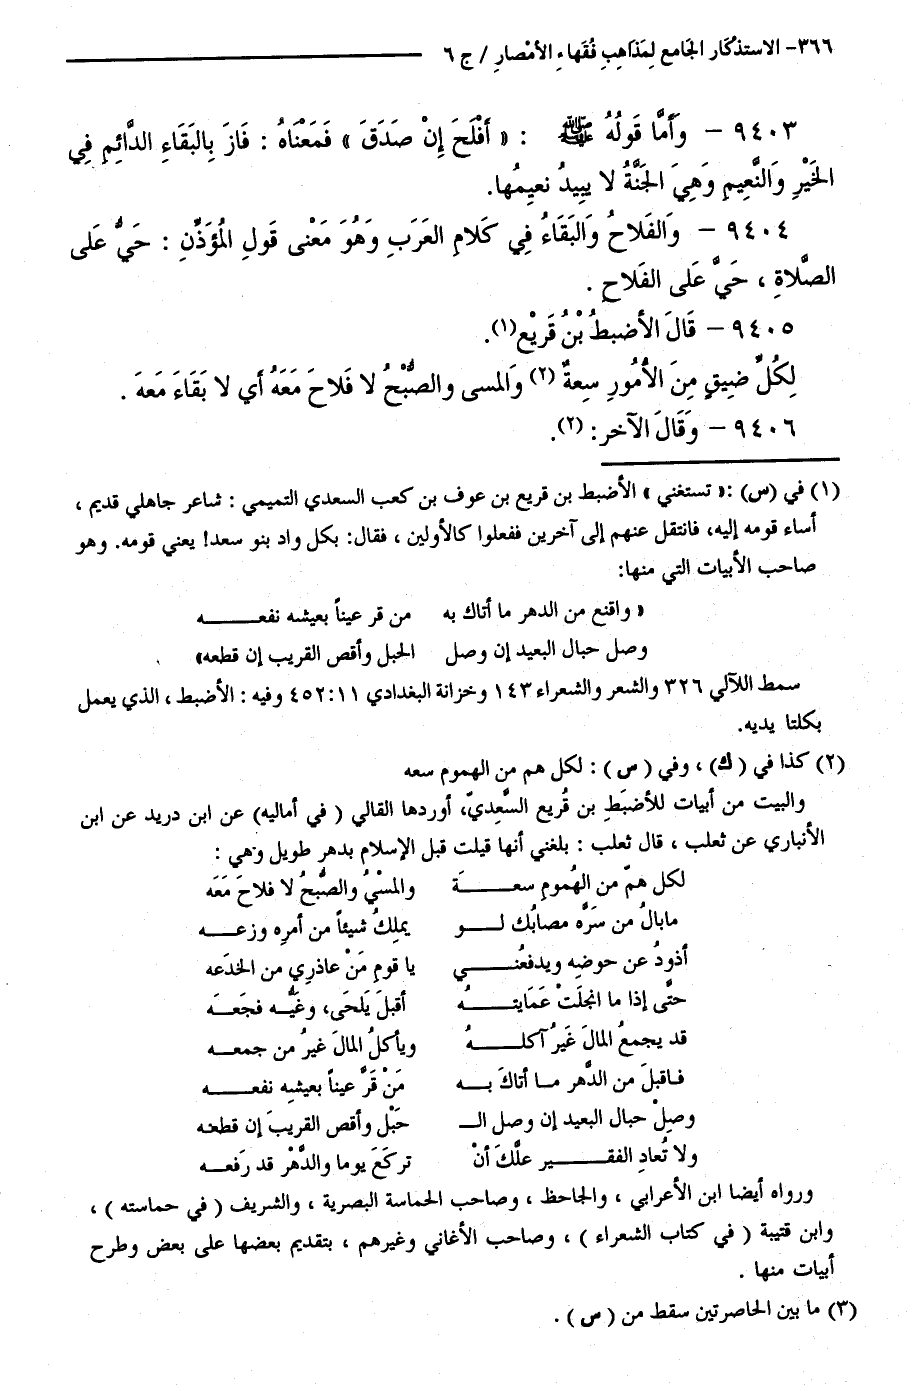 ٣٦٦- الاستذكار الجامع لِمَذاهِبِ فُقَهاءِ الأمْصارِ / ج ٦
٩٤٠٣ – وَأمَّا قَولُهُ ﷺ : « أَفْلَحَ إِنْ صَدَقَ » فَمَعْنَاهُ : فَازَ بِالبَقَاءِ الدَّائِمِ فِي
الخَيْرِ وَالنَّعِيمِ وَهِيَ الجَنَّةُ لا يبِيدُ نعيِمُها.
٩٤٠٤ – وَالفَلاحُ والبَقَاءُ فِي كَلامِ العَرَبِ وَهُوَ مَعْنى قَولِ المُؤَذِّنِ : حَيَّ عَلى
الصَّلاةِ ، حَيَّ عَلى الفَلاحِ .
٩٤٠٥ – قَالَ الأضبطُ بْنُ قَرِيْعٍ(١).
لِكُلِّ ضيقٍ مِنَ الأُمُورِ سِعةٌ (٢) وَالمسى والصُّبْحُ لا فَلاحَ مَعَهُ أي لا بَقَاءَ مَعهَ .
٩٤٠٦ – وَقَالَ الآخر: (٢).
(١) في (س) :« تستغني » الأضبط بن قريع بن عوف بن كعب السعدي التميمي : شاعر جاهلي قديم ،
أساء قومه إليه، فانتقل عنهم إلى آخرين ففعلوا كالأولين ، فقال: بكل واد بنو سعد! يعني قومه. وهو
صاحب الأبيات التي منها:
« واقنع من الدهر ما أتاك به من قر عيناً بعيشه نفعـــــــه
وصل حبال البعيد إن وصل الحبل وأقص القريب إن قطعه»
سمط اللآلي ٣٢٦ والشعر والشعراء ١٤٣ وخزانة البغدادي ٤٥٢:١١ وفيه : الأضبط ، الذي يعمل
بكلتا يديه.
(٢) كذا في ( ك) ، وفي ( س ) : لكل هم من الهموم سعه
والبيت من أبيات للأضبَطِ بن قُريع السَّعِديّ، أوردها القالي ( في أماليه) عن ابن دريد عن ابن
الأنباري عن ثعلب ، قال ثعلب : بلغني أنها قيلت قبل الإسلام بدهر طويل وهي :
لكل همّ من الهُمومِ سعـــــــَة والمسْيُ والصُّبحُ لا فلاحَ مَعَه
مابالُ من سَرَّه مصابُك لــــو يملِكُ شيئاً من أمرِه وزعــــه
أذودُ عن حوضِه ويدفعُنــــــي يا قومِ مَنْ عاذرِي من الخدَعه
حتَّى إذا ما انجلَتْ عَمَايتــــــُه أقبلَ يَلحَى، وغَيُّـــه فجَعــَه
قد يجمعُ المالَ غَيرُ آكلــــــُهُ ويأكلُ المالَ غيرُ من جمعـــه
فـاقبلَ من الدَّهر مــا أتاكَ بـــه مَنْ قَرَّ عيناً بعيشِه نفعـــــــه
وصِلْ حبال البعيد إن وصل الـــ حَبْل وأقص القريبَ إن قطعـه
ولا تُعادِ الفقـــــــير علَّكَ أنْ تركَعَ يوما والدَّهْر قد رَفعـــه
ورواه أيضا ابن الأعرابي ، والجاحظ ، وصاحب الحماسة البصرية ، والشريف ( في حماسته ) ،
وابن قتيبة ( في كتاب الشعراء ) ، وصاحب الأغاني وغيرهم ، بتقديم بعضها على بعض وطرح
أبيات منها .
(٣) ما بين الحاصرتين سقط من ( س ) .